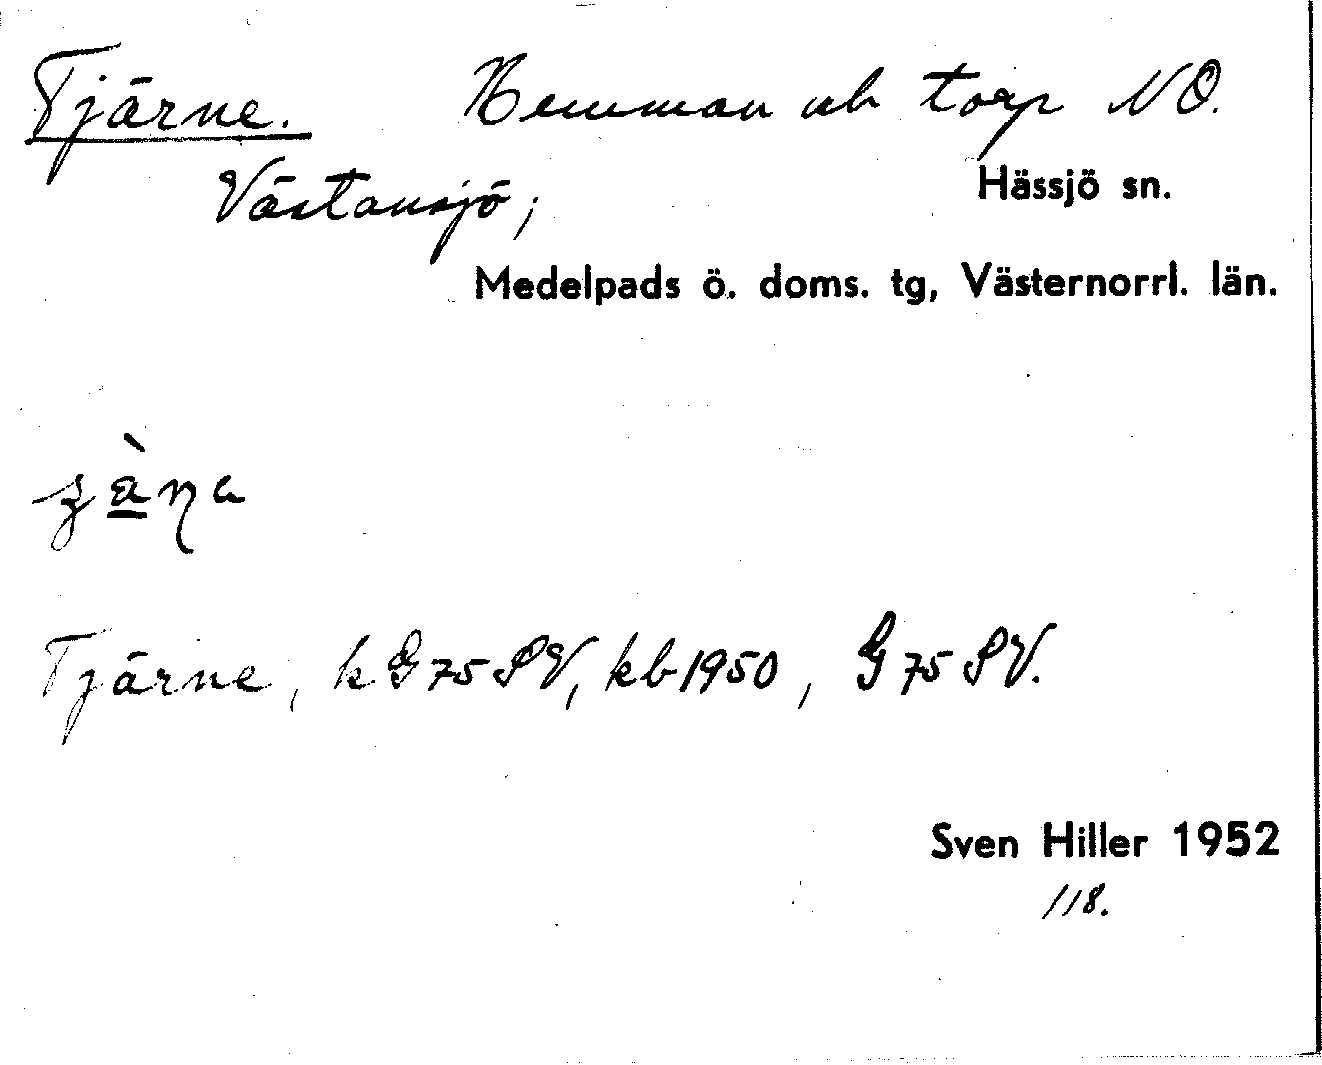 Tjärne. Hemman och torp NO.
Västansjö; Hässjö sn.
Medelpads ö. doms. tg, Västernorrl. län.
Tjärne, k G 75 SV, kb 1950, G 75 SV.
Sven Hiller 1952
118.